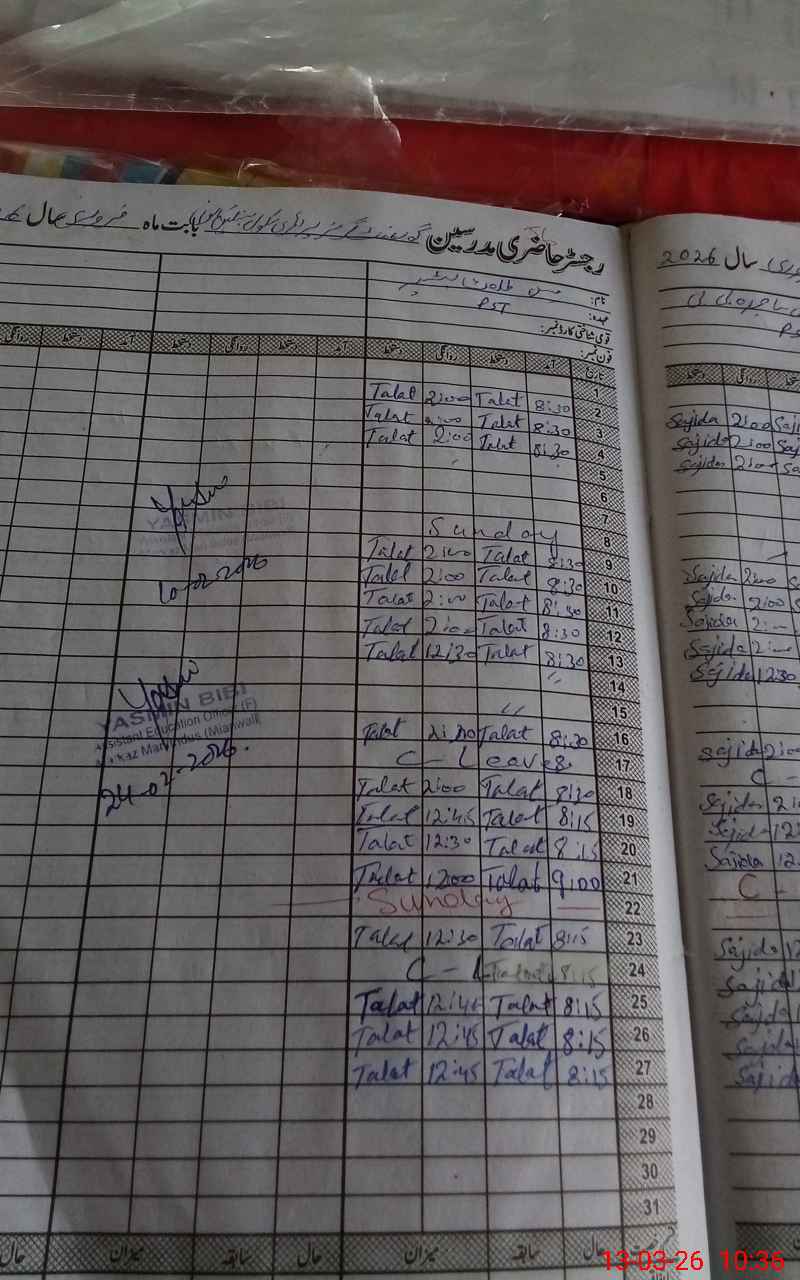 رجسٹر حاضری مدرسین گورنمنٹ گرلز پرائمری سکول بابت ماہ فروری سال
سال 2026
نام: مس طلعت
عہدہ: PST
قومی شناختی کارڈ نمبر:
فون نمبر:
تاریخ آمد دستخط روانگی دستخط آمد دستخط روانگی دستخط آمد دستخط روانگی
1
2 8:30 Talat 2:00 Talat
3 8:30 Talat 2:00 Talat Sajida 2:00
4 8:30 Talat 2:00 Talat Sajida 2:00
5 Sajida 2:00
6
7
8 Sunday
9 8:30 Talat 2:00 Talat
10 8:30 Talat 2:00 Talat Sajida 2:00
11 8:30 Talat 2:00 Talat Sajida 2:00
12 8:30 Talat 2:00 Talat Sajida
13 8:30 Talat 12:30 Talat Sajida
14 " Sajida 12:30
15 "
16 8:30 Talat Talat
17 C-Leave Sajida 2:00
18 8:30 Talat 2:00 Talat C -
19 8:15 Talat 12:45 Talat Sajida
20 8:15 Talat 12:30 Talat Sajida
21 9:00 Talat 12:00 Talat Sajida 12
22 Sunday C -
23 8:15 Talat 12:30 Talat
24 C - L 8:15 Sajida
25 8:15 Talat 12:45 Talat Sajida
26 8:15 Talat 12:45 Talat Sajida
27 8:15 Talat 12:45 Talat Sajida
28 Sajida
29
30
31
YASMIN BIBI
10-02-2026
YASMIN BIBI
Assistant Education Officer (F)
24-02-2026.
حال سابقہ میزان حال سابقہ میزان حال
13-03-26 10:36